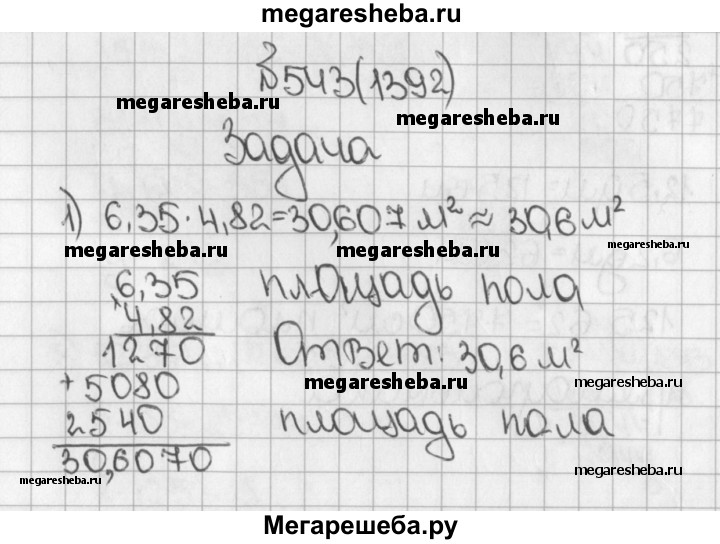 megaresheba.ru
№543(1392)
megaresheba.ru
megaresheba.ru
Задача
1) 6,35·4,82=30,607 м² ≈ 30,6 м²
megaresheba.ru
megaresheba.ru
megaresheba.ru
6,35 площадь пола
×4,82
1270 Ответ: 30,6 м²
megaresheba.ru
megaresheba.ru
+5080
2540 площадь пола
30,6070
megaresheba.ru
megaresheba.ru
Мегарешеба.ру